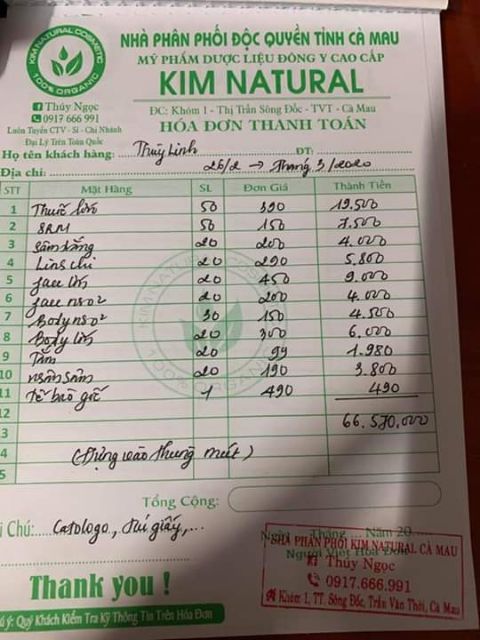 NHÀ PHÂN PHỐI ĐỘC QUYỀN TỈNH CÀ MAU
MỸ PHẨM DƯỢC LIỆU ĐÔNG Y CAO CẤP
KIM NATURAL
KIM NATURAL COSMETIC
100% ORGANIC
Thúy Ngọc
0917 666 991
Luôn Tuyển CTV - Sỉ - Chi Nhánh
Đại Lý Trên Toàn Quốc
ĐC: Khóm 1 - Thị Trấn Sông Đốc - TVT - Cà Mau
HÓA ĐƠN THANH TOÁN
Họ tên khách hàng: Thùy Linh ĐT:
Địa chỉ: 26/2 → Tháng 3/2020
STT Mặt Hàng SL Đơn Giá Thành Tiền
1 Thuốc lớn 50 390 19.500
2 SRM 50 150 7.500
3 20 200 4.000
4 Linh chi 20 290 5.800
5 face lớn 20 450 9.000
6 face nhỏ 20 200 4.000
7 Body nhỏ 30 150 4.500
8 Body lớn 20 300 6.000
9 Tắm 20 99 1.980
10 nhân sâm 20 190 3.800
11 tế bào gốc 1 490 490
12 66.570,000
3
4 (Đựng vào thùng mút)
5
Tổng Cộng:
i Chú: Catologo, túi giấy,...
Ngày ... Tháng .... Năm 20....
Người Viết Hóa Đơn
NHÀ PHÂN PHỐI KIM NATURAL CÀ MAU
Thúy Ngọc
0917.666.991
Khóm 1, TT. Sông Đốc, Trần Văn Thời, Cà Mau
Thank you !
ú ý: Quý Khách Kiểm Tra Kỹ Thông Tin Trên Hóa Đơn